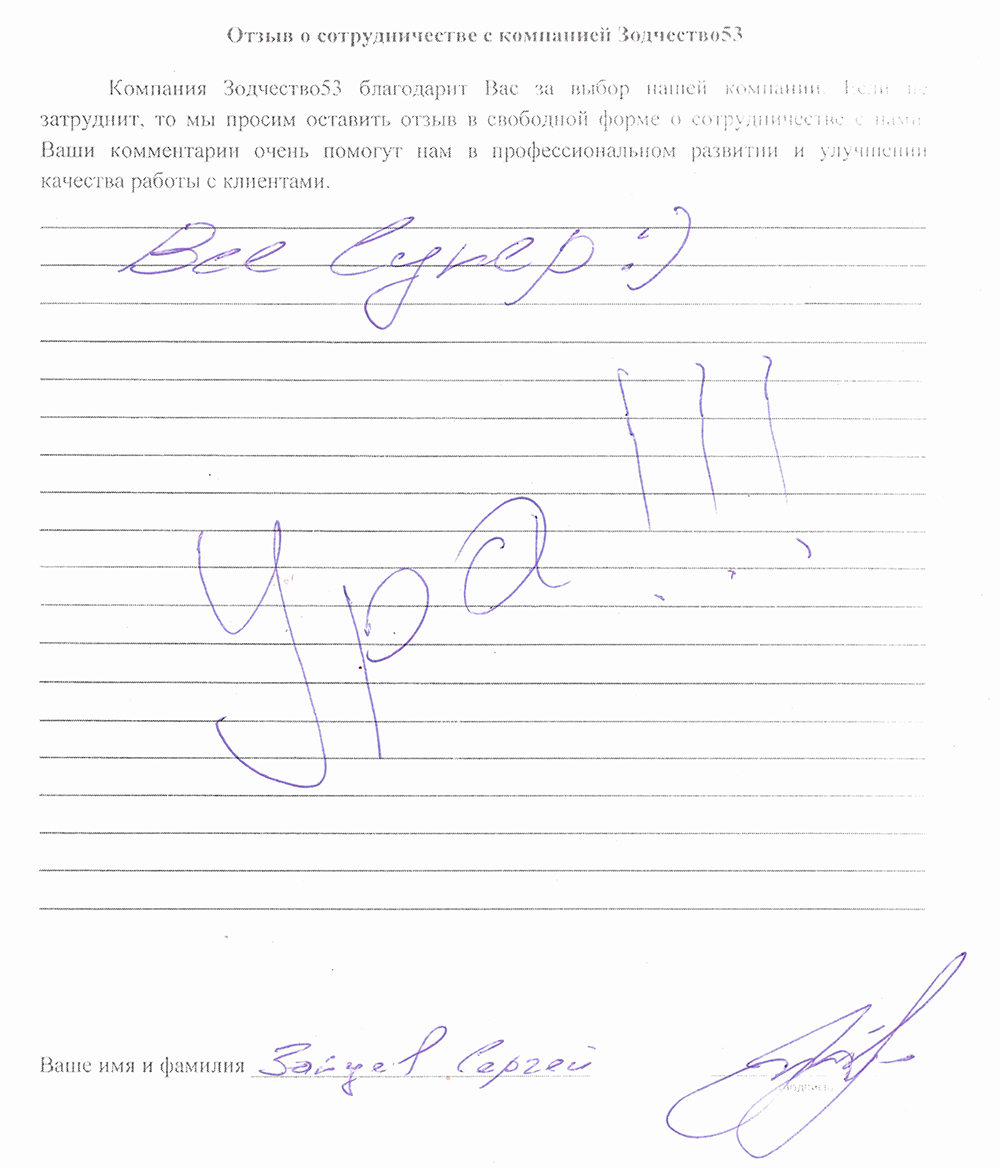 Отзыв о сотрудничестве с компанией Зодчество53
Компания Зодчество53 благодарит Вас за выбор нашей компании. Если не
затруднит, то мы просим оставить отзыв в свободной форме о сотрудничестве с нами.
Ваши комментарии очень помогут нам в профессиональном развитии и улучшении
качества работы с клиентами.
Все Супер :)
Ура!!!
Ваше имя и фамилия Зайцев Сергей
(подпись)